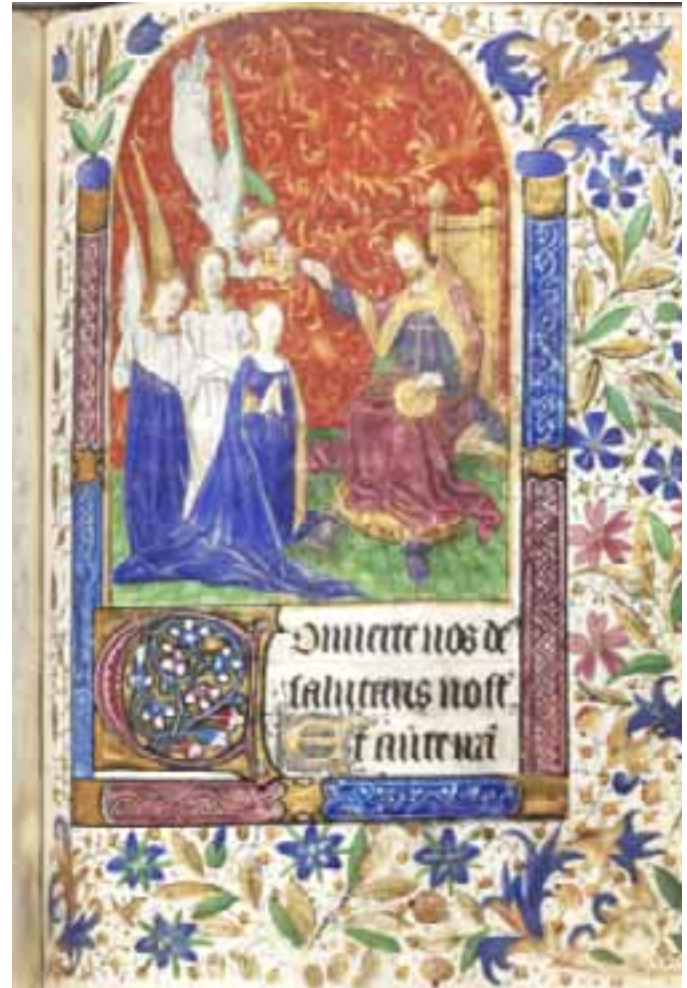 Onuerte nos de
salutaris nost
Et auerte irā